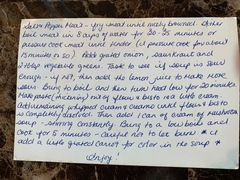 Salt & Pepper Meat - fry meat until nicely browned. Either
boil meat in 8 cups of water for 20-25 minutes or
pressure cook meat until tender (I pressure cook for about
15 minutes or so). Add grated onion, sauerkraut and
2 tbsp vegetable greens. Taste to see if soup is sour
enough - if not, then add the lemon juice to make more
sour. Bring to boil and then turn heat low for 20 minutes
Make paste (thickening) mix of flour & butter in a little cream.
Add remaining whipped cream & creamo until flour & butter
is completely dissolved. Then add 1 can of cream of mushroom
soup - stirring constantly. Bring to a low boil and
cook for 5 minutes - careful not to let burn * I
add a little grated carrot for color in the soup *
Enjoy!